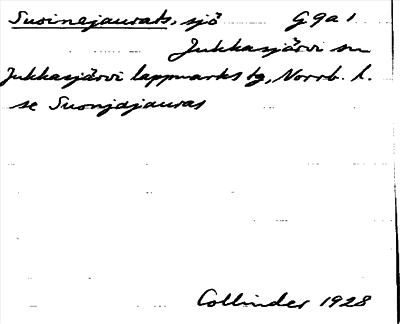 Suoinejaurats, sjö G9a1
Jukkasjärvi sn
Jukkasjärvi lappmarks tg, Norrb. l.
se Suonjajauras
Collinder 1928